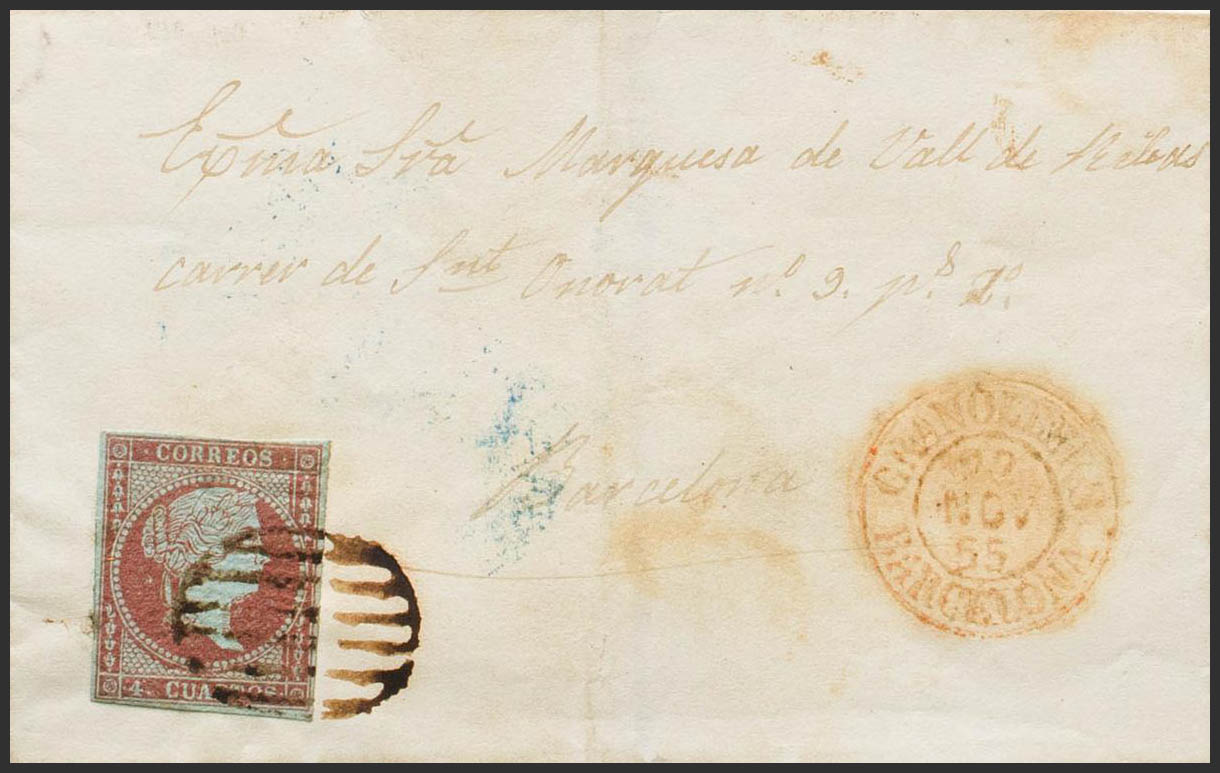 Exma Srã Marquesa de Vall de Ribas
carrer de Snt Onorat nº. 3. ps. 2º.
Barcelona
CORREOS
4 CUARTOS
GRANOLLERS
NOV
55
BARCELONA